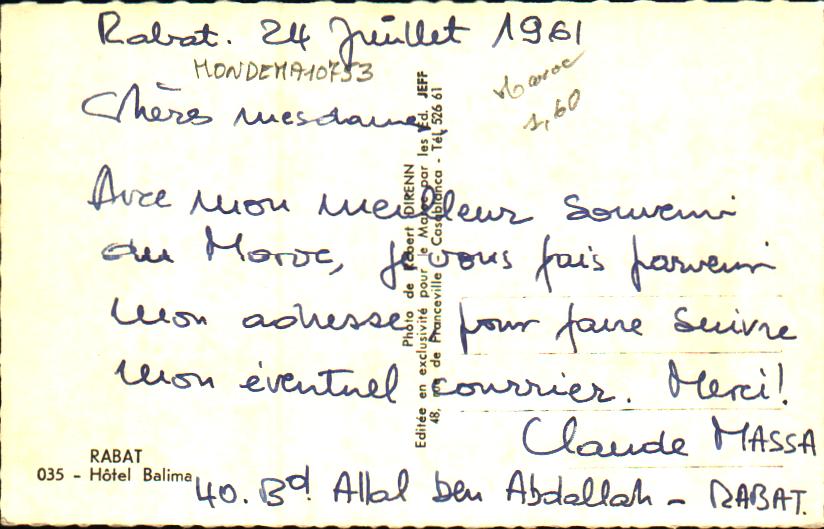 Rabat. 24 Juillet 1961
MONDEMA10753
Maroc
1,60
Chères mesdames,
Avec mon meilleur souvenir
du Maroc, je vous fais parvenir
mon adresse pour faire suivre
mon éventuel courrier. Merci!
Claude MASSA
40. Bd Allal ben Abdallah - RABAT.
RABAT
035 - Hôtel Balima
Photo de Robert DIRENN
Editée en exclusivité pour le Maroc par les Ed. JEFF
48, rue de Franceville - Casablanca - Tél. 526 61